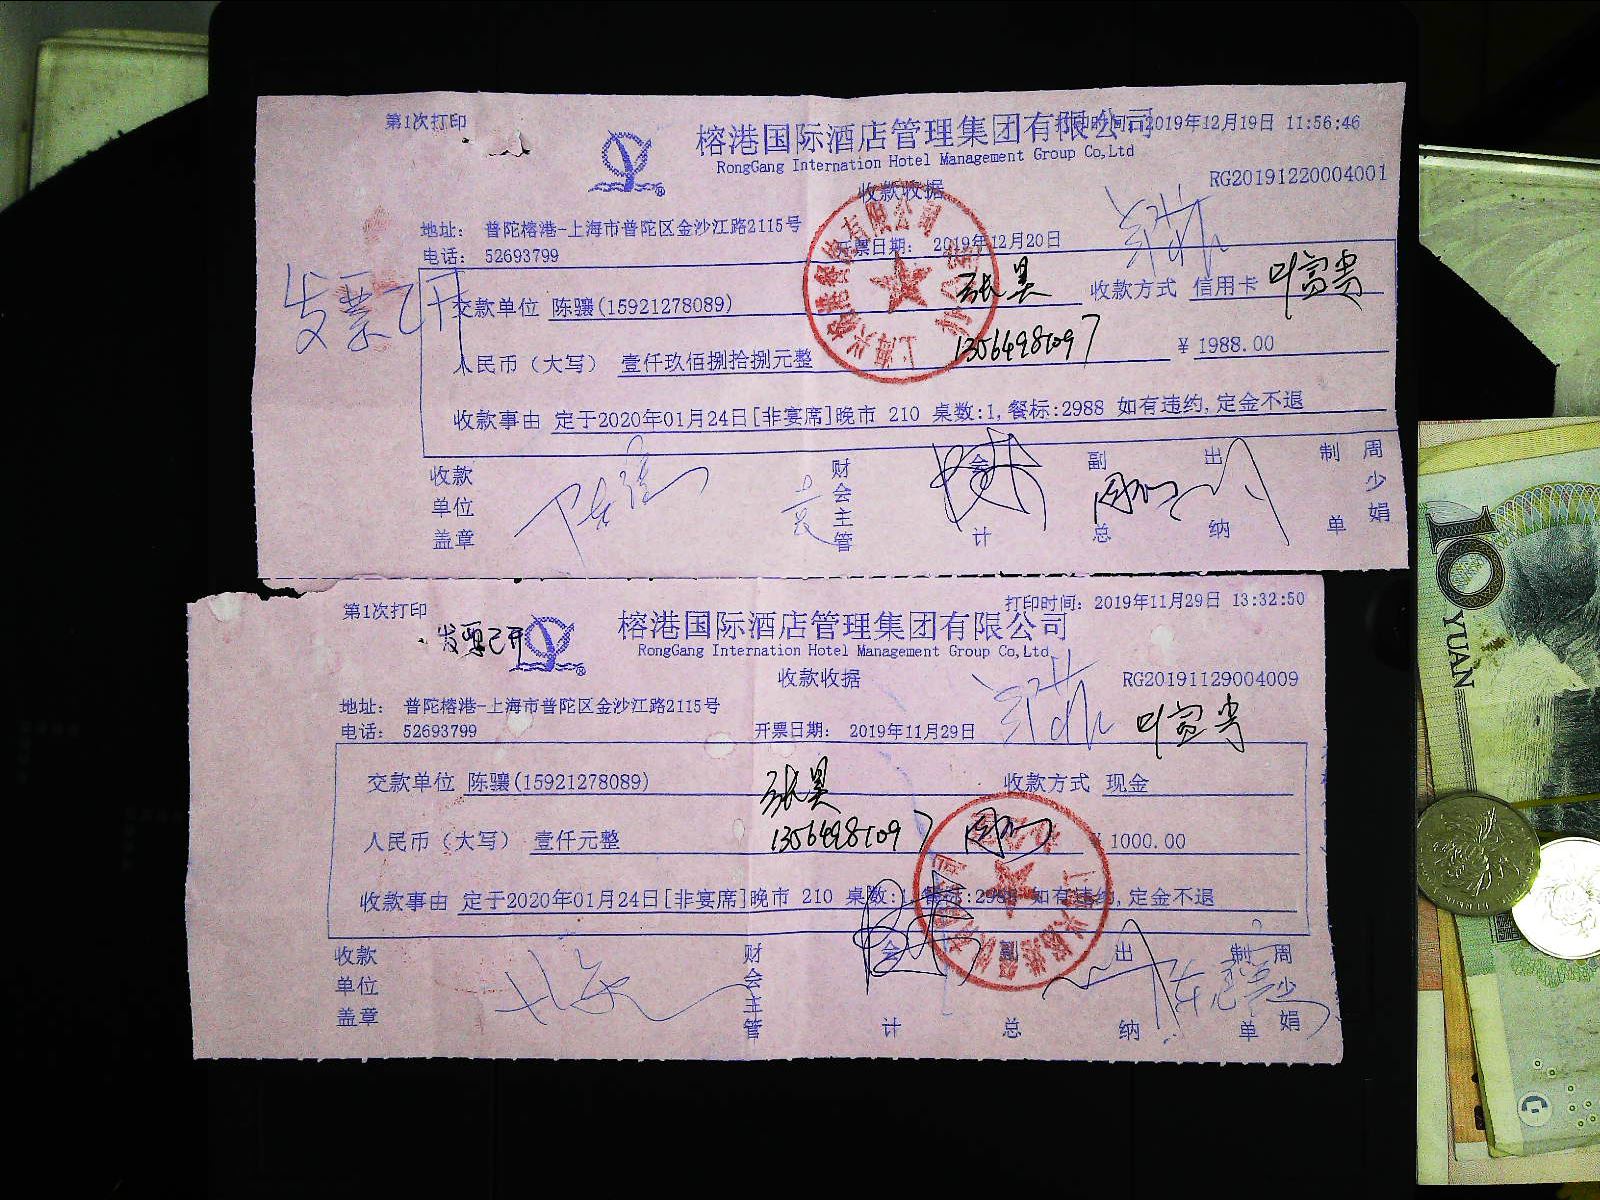 第1次打印
榕港国际酒店管理集团有限公司
2019年12月19日 11:56:46
RongGang Internation Hotel Management Group Co,Ltd
收款收据
RG20191220004001
地址: 普陀榕港-上海市普陀区金沙江路2115号
电话: 52693799
开票日期: 2019年12月20日
发票已开
交款单位 陈骧(15921278089)
张昊
收款方式 信用卡
叶富贵
人民币(大写) 壹仟玖佰捌拾捌元整
¥ 1988.00
收款事由 定于2020年01月24日[非宴席]晚市 210 桌数:1,餐标:2988 如有违约,定金不退
收款单位盖章
财会主管
会计
副总
出纳
制单
周少娟
第1次打印
打印时间: 2019年11月29日 13:32:50
榕港国际酒店管理集团有限公司
发票已开
RongGang Internation Hotel Management Group Co,Ltd
收款收据
RG20191129004009
地址: 普陀榕港-上海市普陀区金沙江路2115号
电话: 52693799
开票日期: 2019年11月29日
叶富贵
交款单位 陈骧(15921278089)
张昊
收款方式 现金
人民币(大写) 壹仟元整
¥ 1000.00
收款事由 定于2020年01月24日[非宴席]晚市 210 桌数:1,餐标:2988 如有违约,定金不退
收款单位盖章
财会主管
会计
副总
出纳
制单
周少娟
10 YUAN